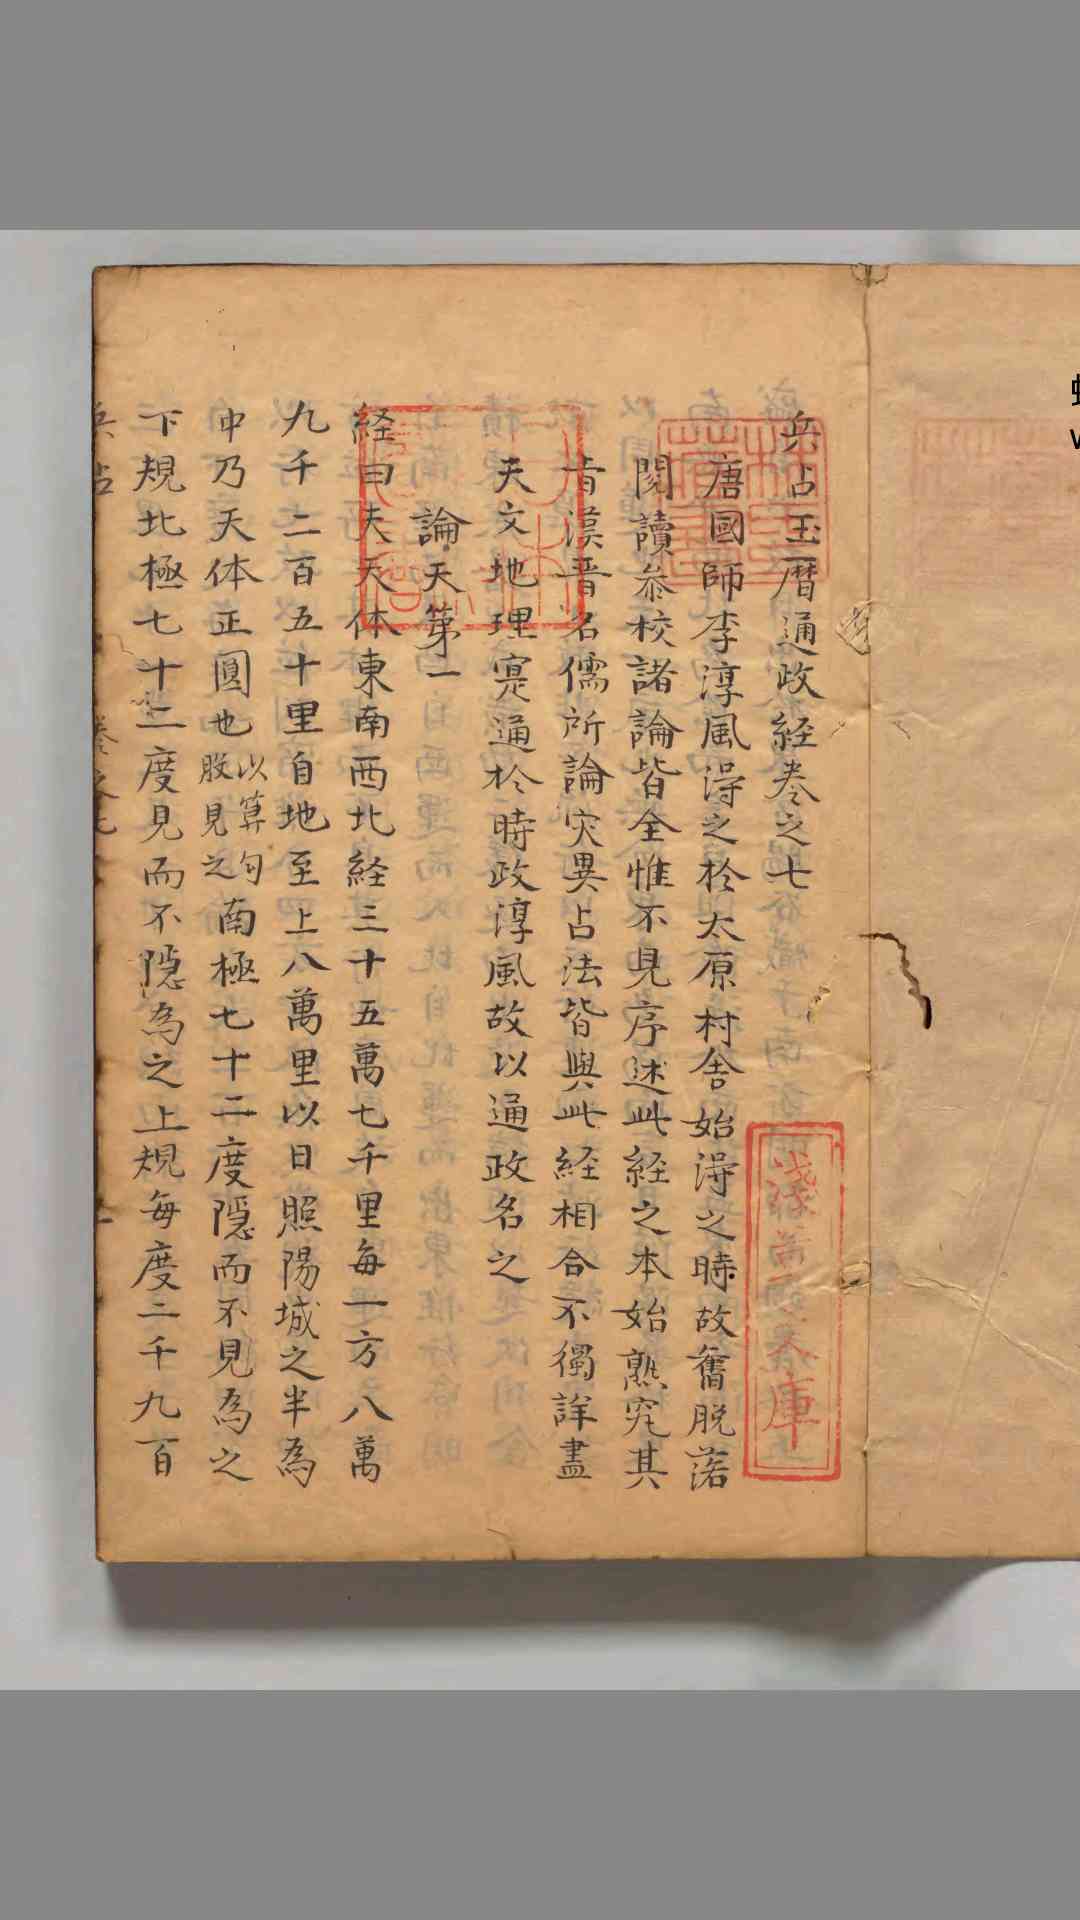 兵占玉曆通政経卷之七
唐國師李淳風淂之於太原村舍始淂之時故舊脫落
閱讀叅校諸論皆全惟不見序述此経之本始熟究其
昔漢晋名儒所論灾異占法皆與此経相合不獨詳盡
天文地理寔通於時政淳風故以通政名之
論天第一
経曰夫天体東南西北経三十五萬七千里每一方八萬
九千二百五十里自地至上八萬里以日照陽城之半為
中乃天体正圓也以算句股見之南極七十二度隠而不見為之
下規北極七十二度見而不隠為之上規每度二千九百
兵占
卷之七
淺草文庫